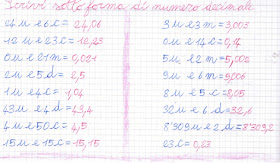 Scrivi sotto forma di numero decimale
24 u e 6 c = 24,06
12 u e 23 c = 12,23
0 u e 21 m = 0,021
2 u e 5 d = 2,5
1 u e 4 c = 1,04
43 u e 4 d = 43,4
4 u e 50 c = 4,5
15 u e 15 c = 15,15
3 u e 3 m = 3,003
0 u e 14 c = 0,14
5 u e 2 m = 5,002
9 u e 6 m = 9,006
8 u e 5 c = 8,05
32 u e 6 d = 32,6
8309 u e 2 d = 8309,2
23 c = 0,23